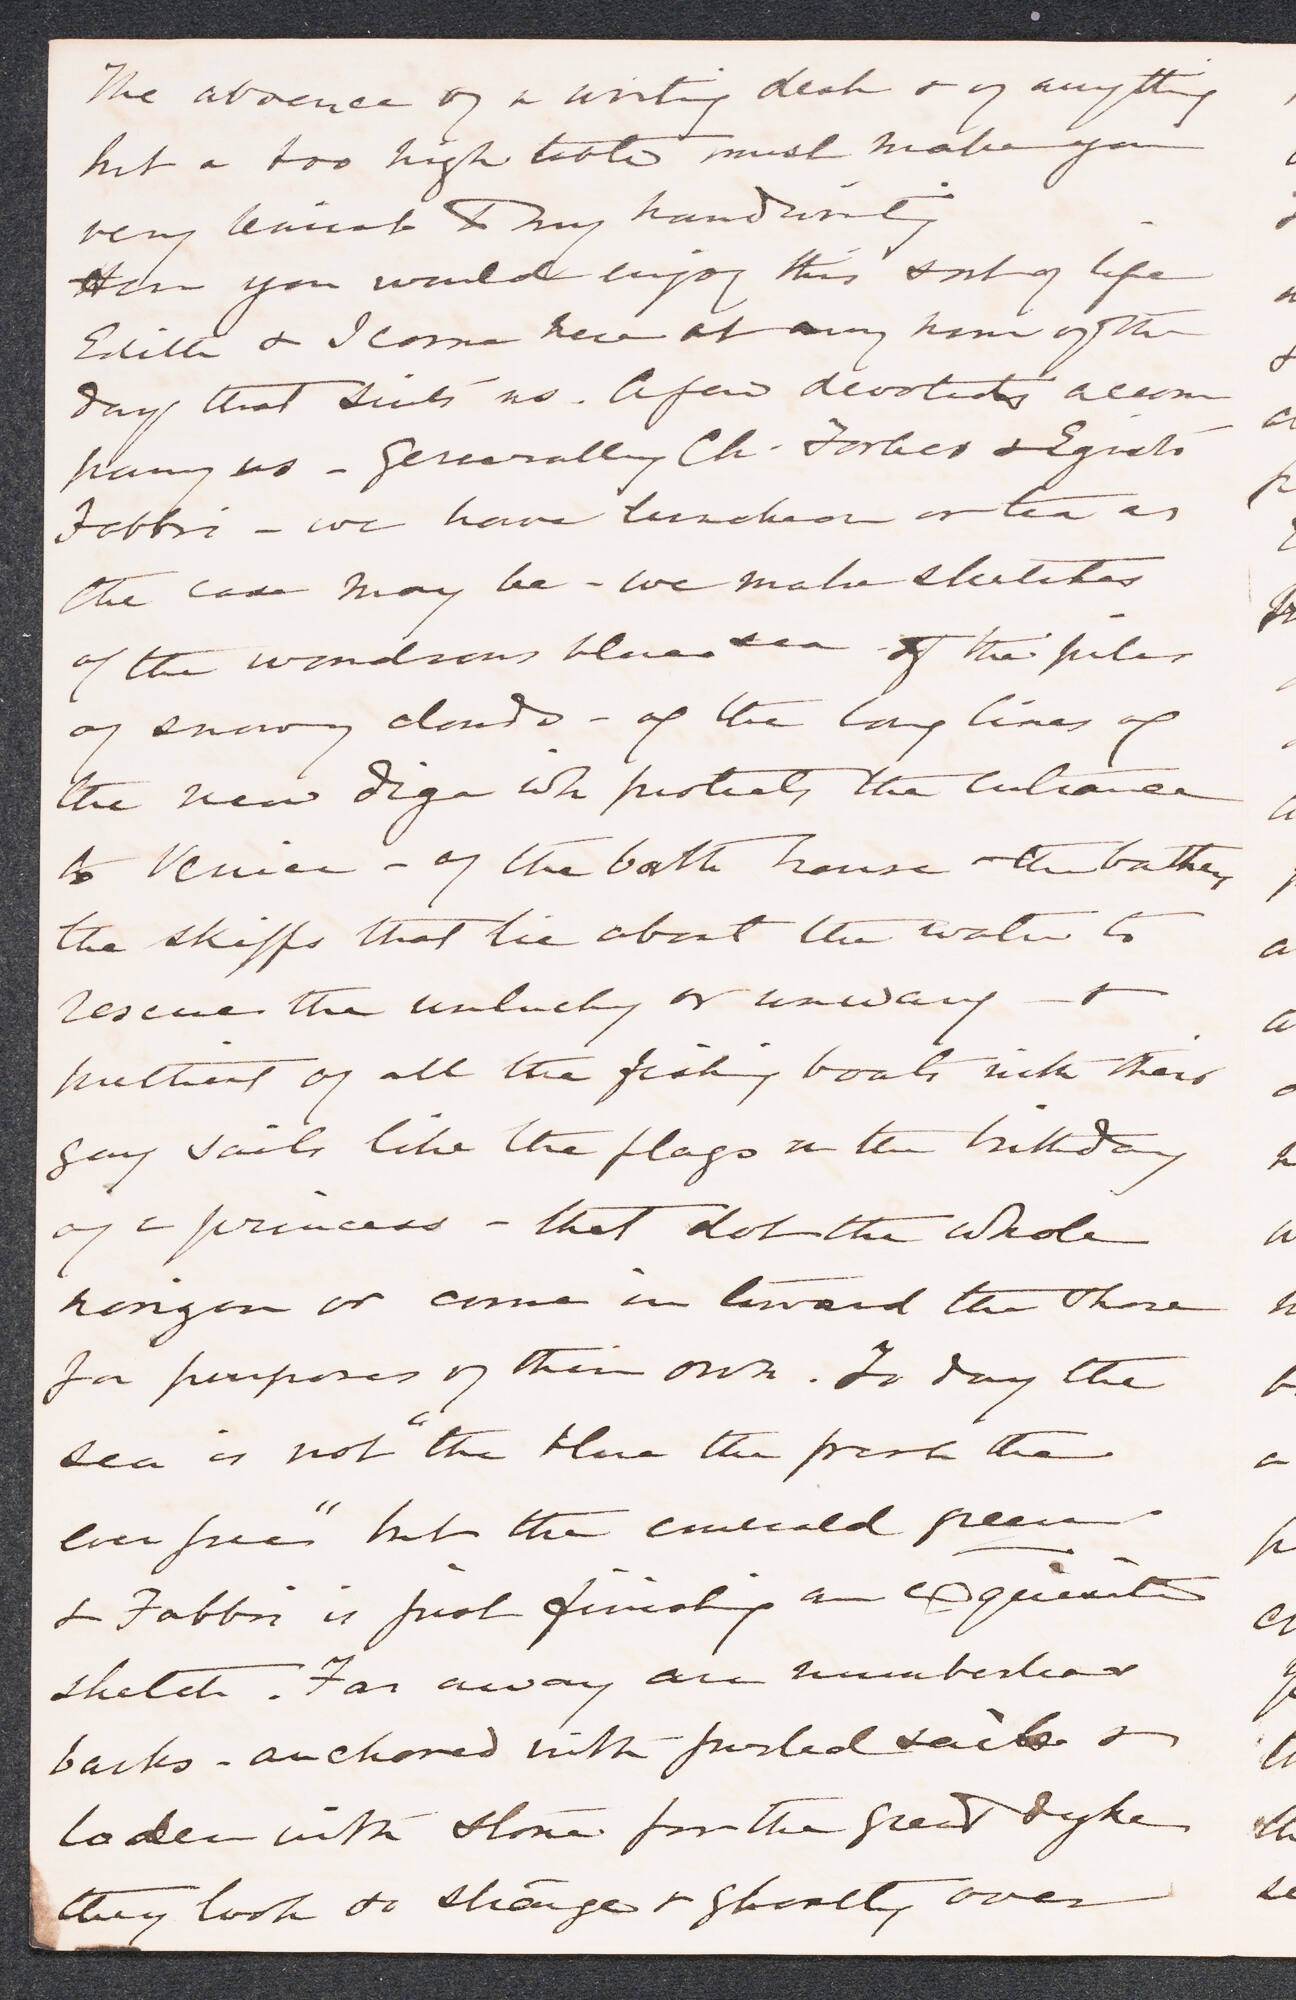 The absence of a writing desk & of anything
but a too high table must make you
very lenient to my handwriting
How you would enjoy this sort of life
Edith & I come here at any hour of the
day that suits us. A few devoteds accom
pany us - generally Ch. Forbes & Egisto
Fabbri - we have luncheon or tea as
the case may be - we make sketches
of the wondrous blue sea - of the piles
of snowy clouds - of the long lines of
the new diga wh protects the entrance
to Venice - of the bath house - the bathers
the skiffs that lie about the water to
rescue the unlucky or unwary - &
prettiest of all the fishing boats with their
gay sails like the flags on the birthday
of a princess - that dot the whole
horizon or come in toward the shore
for purposes of their own. To day the
sea is not "the blue the fresh the
ever free" but the emerald green
& Fabbri is just finishing an exquisite
sketch. Far away are numberless
barks - anchored with furled sails &
laden with stone for the great dyke
they look so strange & ghostly over